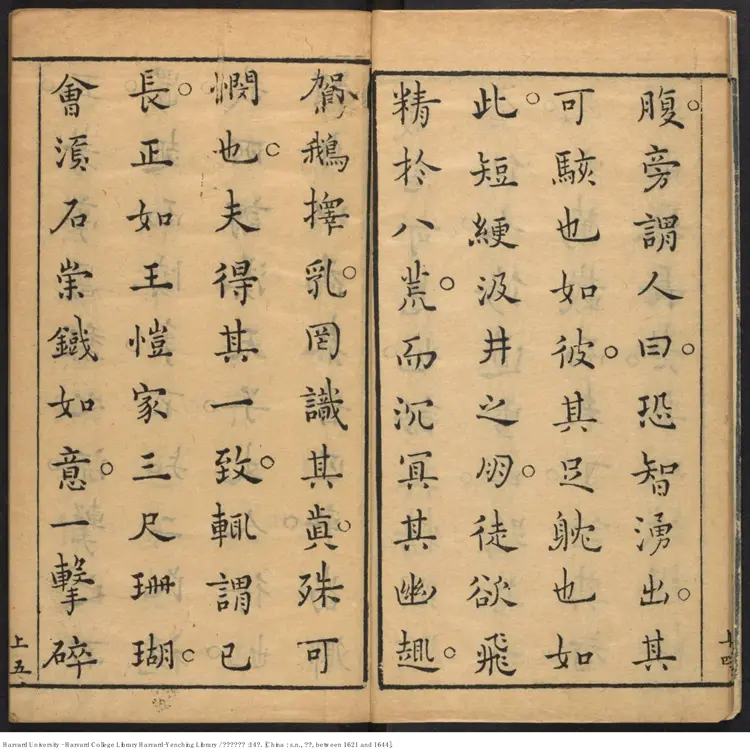 腹。旁謂人曰。恐智湧出。其
可駭也如彼。其足躭也如
此。短綆汲井之朋。徒欲飛
精扵八荒。而沉冥其幽趣。
上四
鴐鵝擇乳。罔識其眞。殊可
憫也。夫得其一致。輒謂已
長。正如王愷家三尺珊瑚。
會湏石崇鐵如意。一擊碎
上五
Harvard University - Harvard College Library Harvard-Yenching Library / ?????? :14?. [China : s.n., ??, between 1621 and 1644].